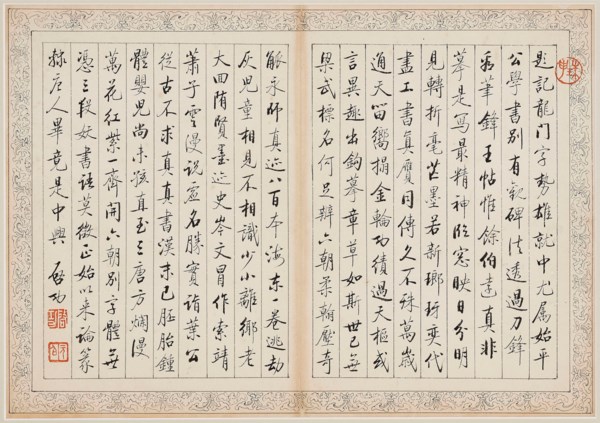 題記龍門字勢雄就中尤屬始平
公學書別有觀碑法透過刀鋒
看筆鋒王帖惟餘伯遠真非
摹是寫最精神臨窗映日分明
見轉折毫芒墨若新瑯琊奕代
盡工書真贋同傳久不殊萬歲
通天留嚮搨金輪功績過天樞或
言異趣出鈎摹章草如斯世已無
梁武標名何足辯六朝柔翰壓奇
觚永師真迹八百本海東一卷逃劫
灰兒童相見不相識少小離鄉老
大回隋賢墨迹史岑文冒作索靖
蕭子雲漫說虛名勝實詣葉公
從古不求真真書漢末已胚胎鍾
體嬰兒尚未孩直至三唐方爛漫
萬花紅紫一齊開六朝別字體無
憑三段妖書語莫徵正始以來論篆
隸唐人畢竟是中興 啓功